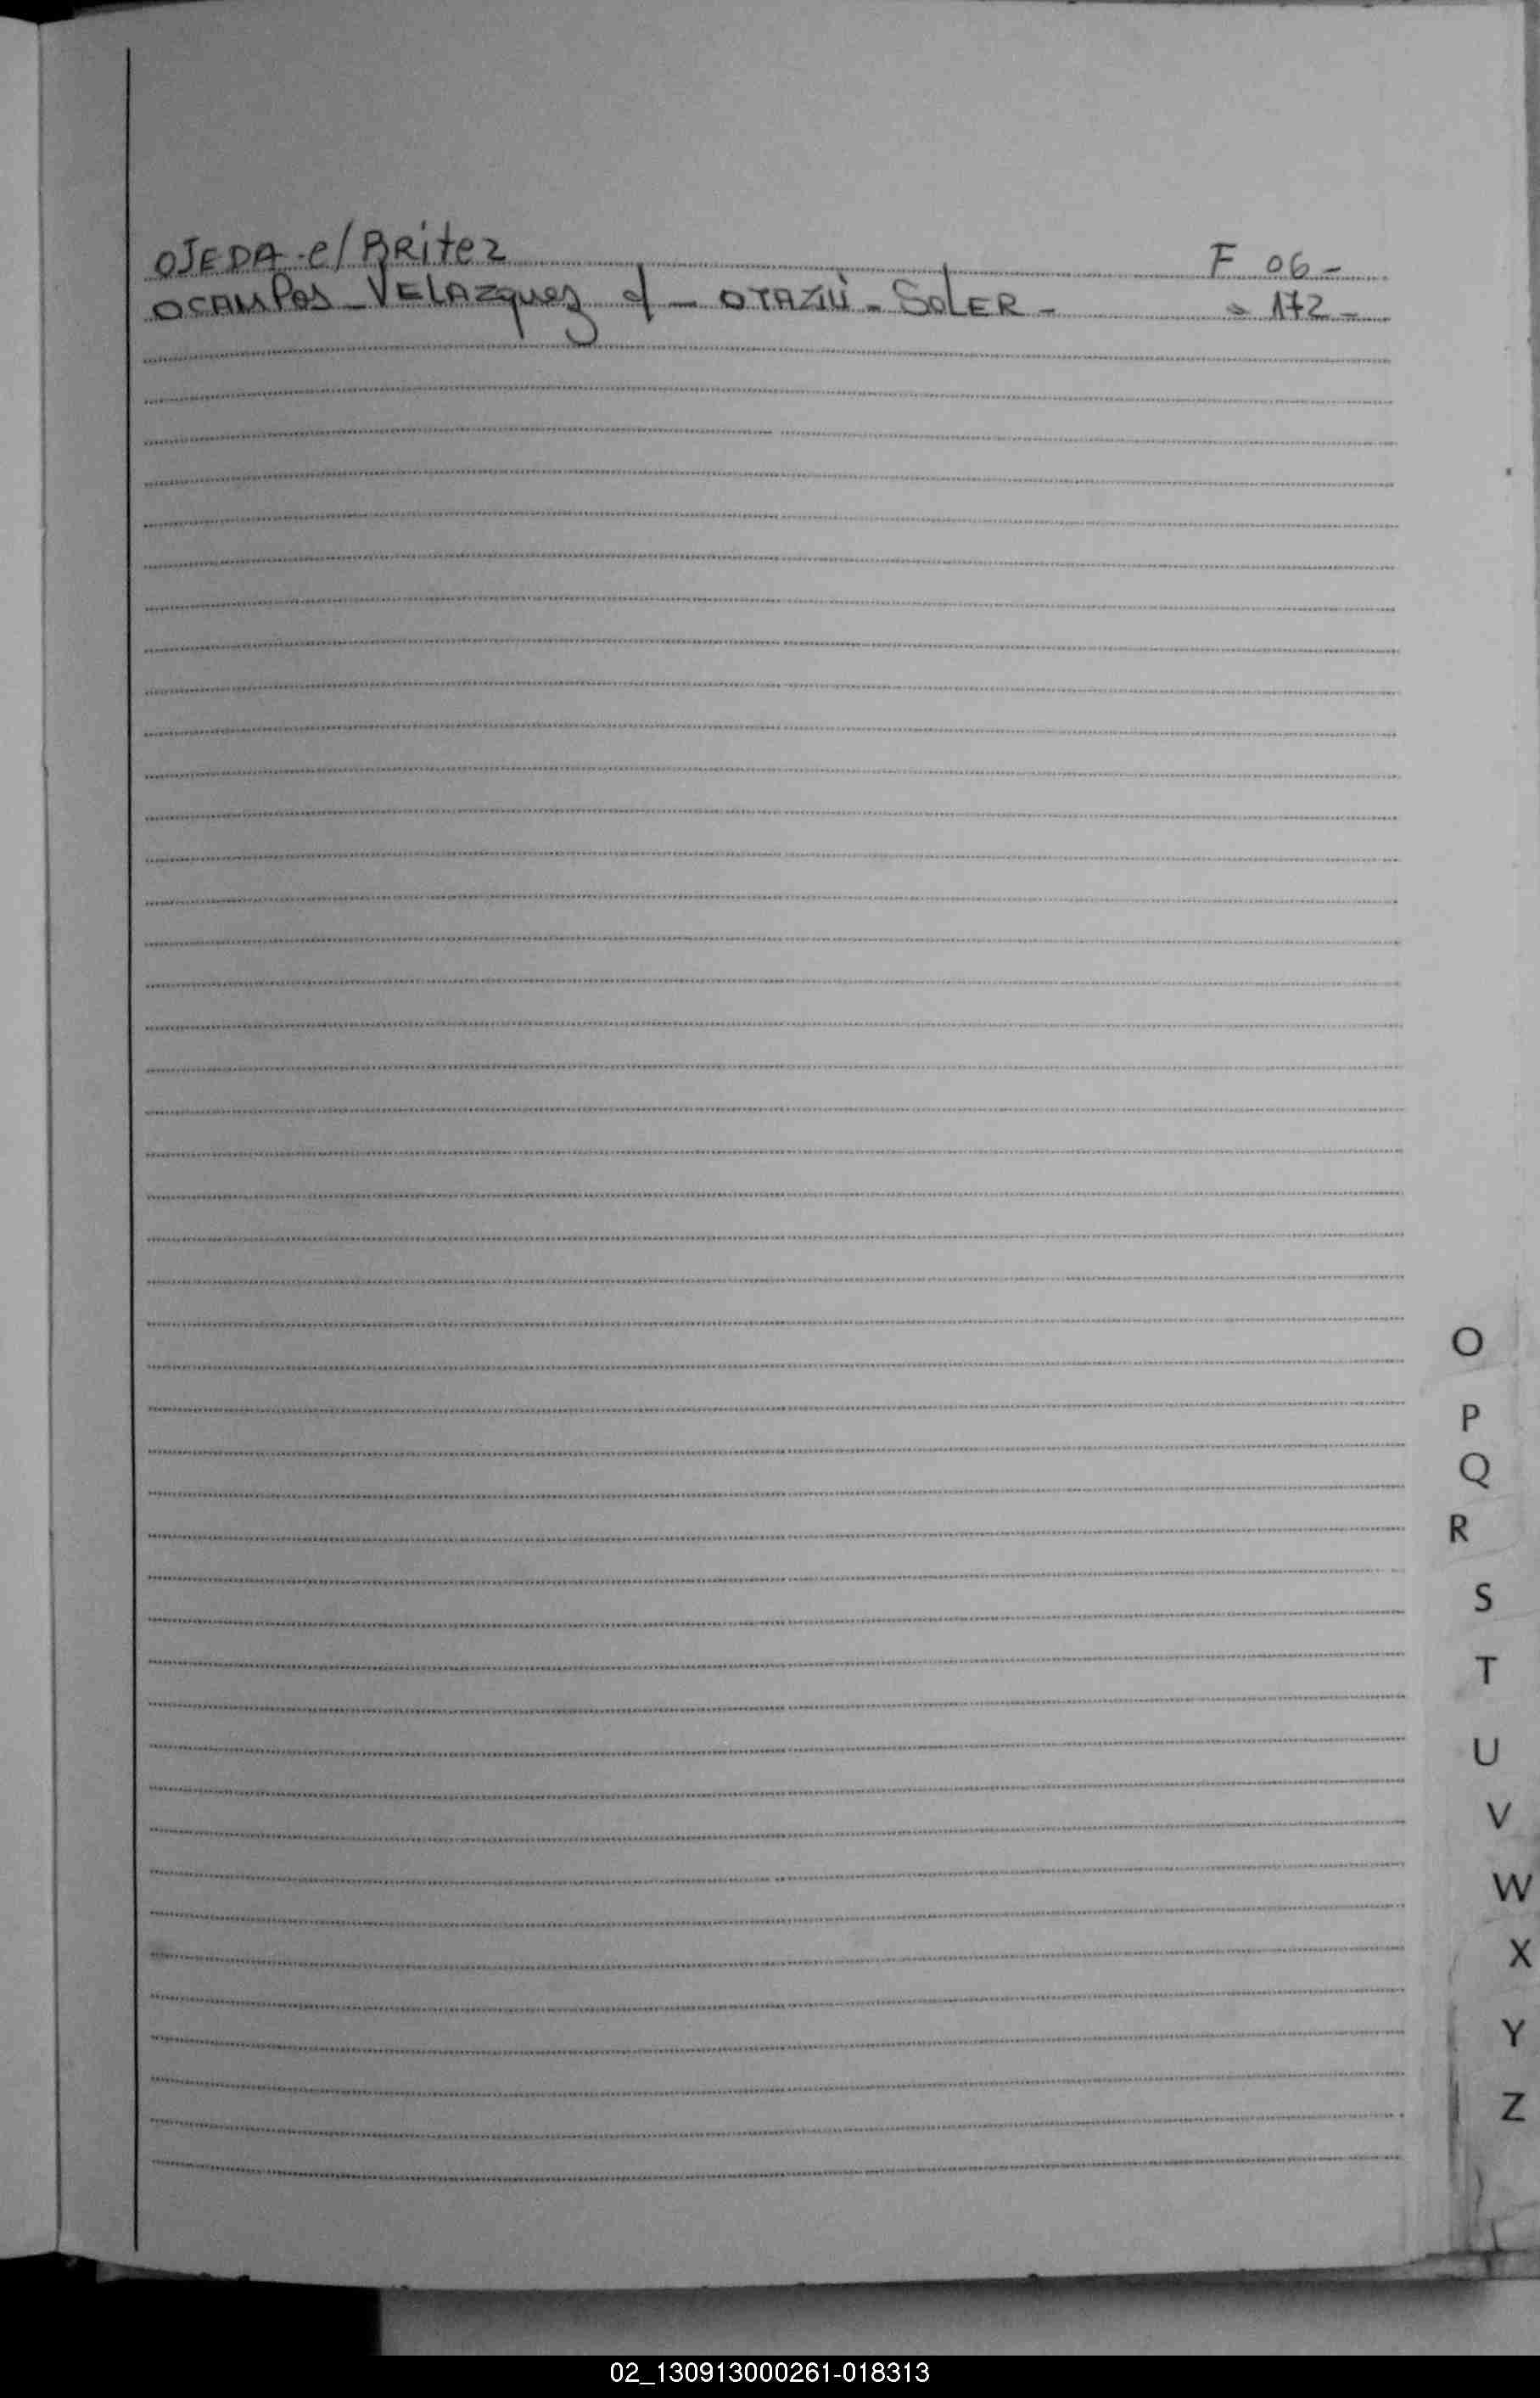 OJEDA - c/ BRitez F 06 -
OCAMPOS - VELAZquez c/ - OTAZÚ - SOLER - " 172 -
O
P
Q
R
S
T
U
V
W
X
Y
Z
02_130913000261-018313